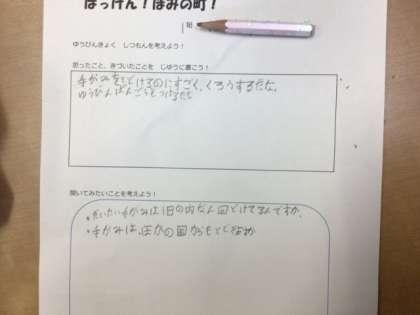 はっけん!ほみの町!
1 組
ゆうびんきょく しつもんを考えよう!
思ったこと、きづいたことを じゆうに書こう!
手がみをとどけるのにすごく、くろうするだな。
ゆうびんばんごう
聞いてみたいことを考えよう!
・だいたい手がみは1日の内なん回とどけてるんですか。
・手かみは、ほかの国からもとどくなか